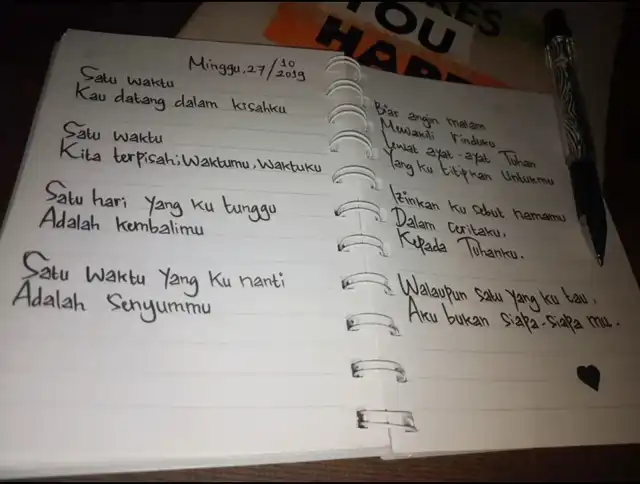 KES
YOU
HAPP
Minggu, 27/10 2019
Satu waktu
Kau datang dalam kisahku
Satu waktu
Kita terpisah; Waktumu, Waktuku
Satu hari yang ku tunggu
Adalah kembalimu
Satu waktu yang ku nanti
Adalah senyummu
Biar angin malam
Mewakili rinduku
Lewat ayat-ayat Tuhan
Yang ku titipkan untukmu
Izinkan ku sebut namamu
Dalam ceritaku,
Kepada Tuhanku.
Walaupun satu yang ku tau,
Aku bukan siapa-siapa mu.